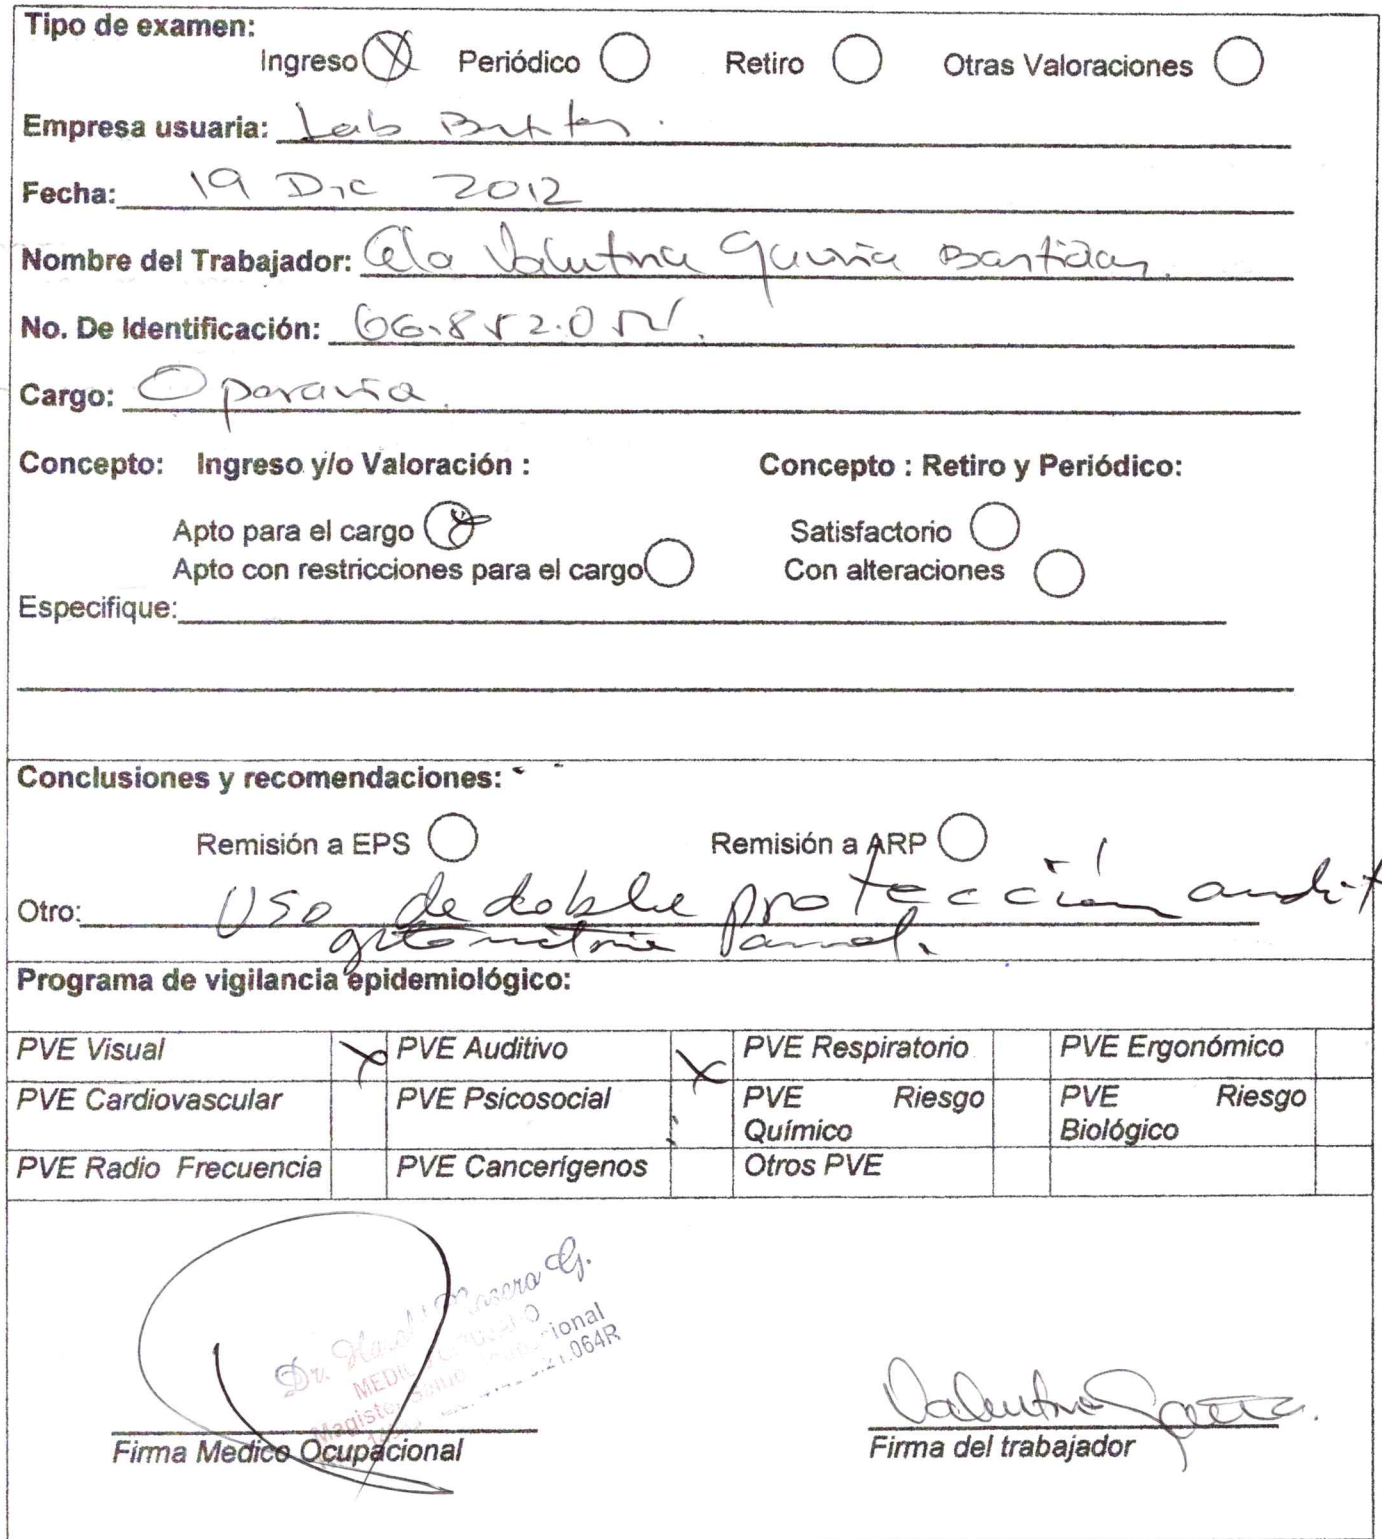 Tipo de examen:
Ingreso Periódico Retiro Otras Valoraciones
Empresa usuaria: Lab
Fecha: 19 Dic 2012
Nombre del Trabajador: Valentina Gaviria Bastidas.
No. De Identificación: 66.852.0
Cargo: Operaria.
Concepto: Ingreso y/o Valoración : Concepto : Retiro y Periódico:
Apto para el cargo Satisfactorio
Apto con restricciones para el cargo Con alteraciones
Especifique:
Conclusiones y recomendaciones:
Remisión a EPS Remisión a ARP
Otro: Uso de doble protección audit
Programa de vigilancia epidemiológico:
PVE Visual X PVE Auditivo X PVE Respiratorio PVE Ergonómico
PVE Cardiovascular PVE Psicosocial PVE Riesgo Químico PVE Riesgo Biológico
PVE Radio Frecuencia PVE Cancerígenos Otros PVE
Dr. G.
Magister
064R
Valentina
Firma Medico Ocupacional Firma del trabajador